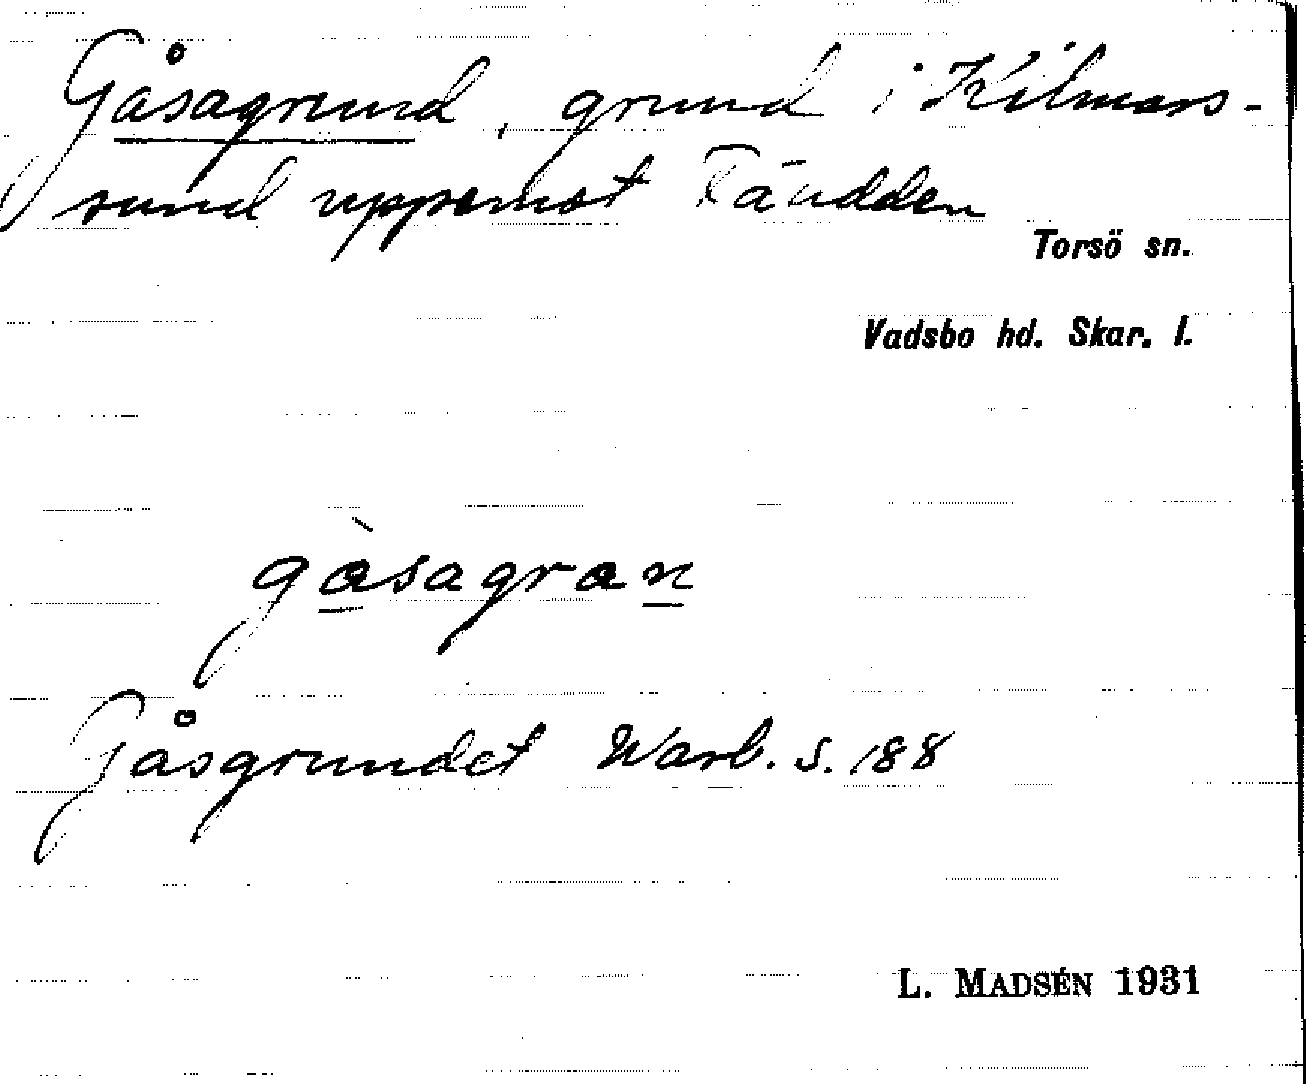 Gåsagrund, grund i Kilmars-
sund uppemot Räudden
Torsö sn.
Vadsbo hd. Skar. l.
gàsagran
Gåsgrundet Warb. S. 188
L. MADSÉN 1931